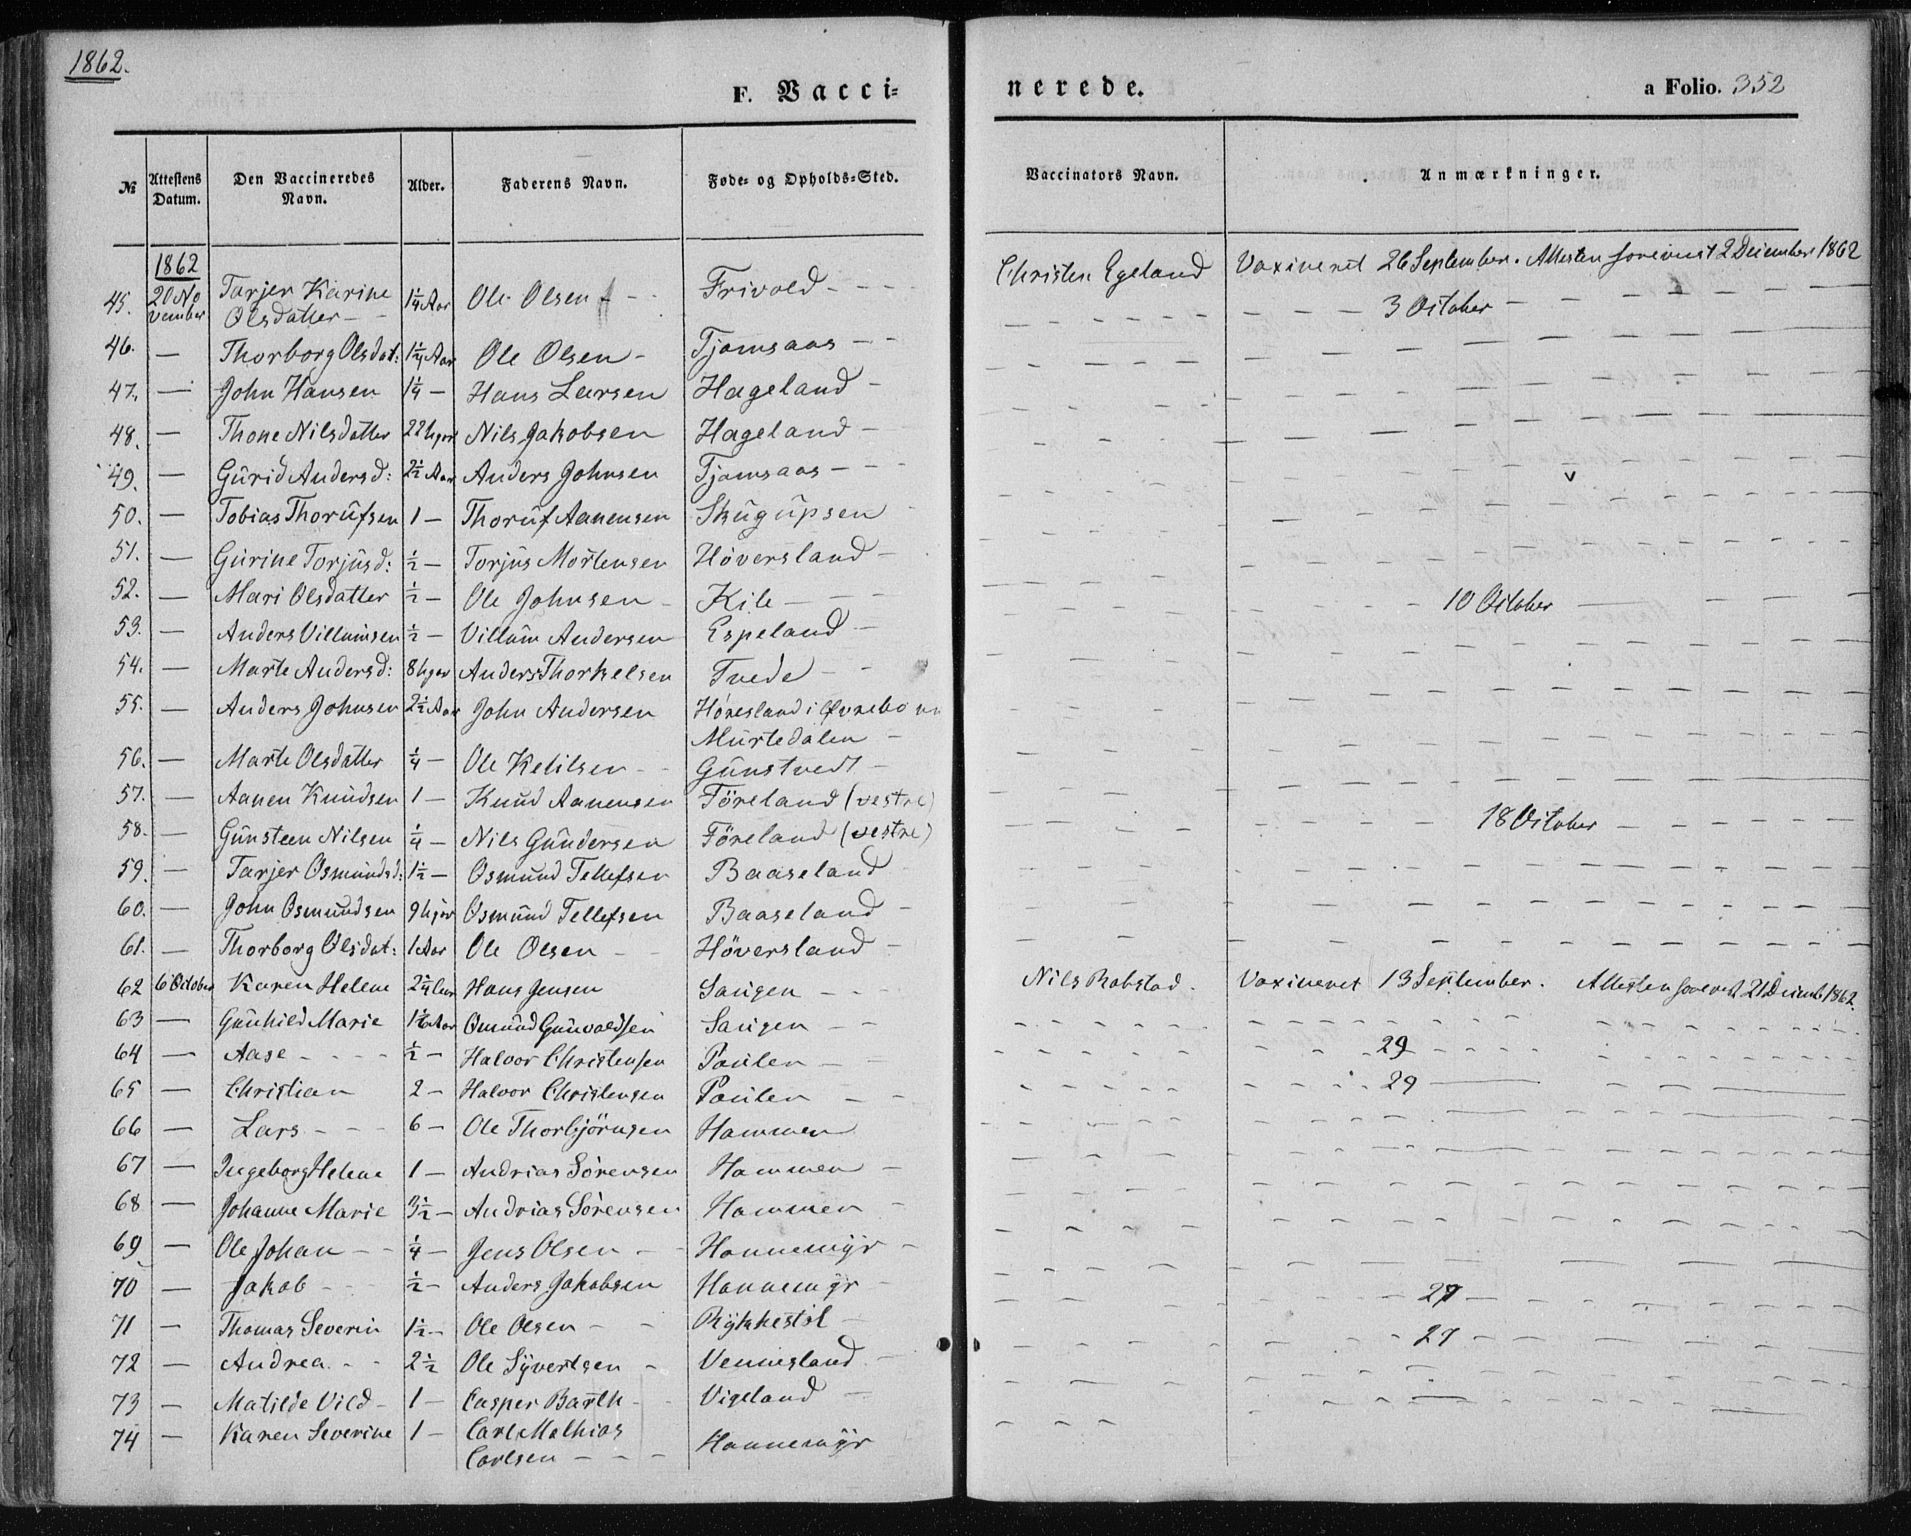 1862.
F. Vaccinerede.
a Folio. 352
№ | Attestens Datum. | Den Vaccineredes Navn. | Alder. | Faderens Navn. | Føde- og Opholds-Sted. | Vaccinators Navn. | Anmærkninger.
1862
45. | 20 November | Tarjer Karine Olsdatter | 1¼ Aar | Ole Olsen | Frivold | Christen Egeland | Vaxineret 26 September. Attesten forevist 2 December 1862
46. | — | Thorborg Olsdat: | 1¼ Aar | Ole Olsen | Tjomsaas | – | 3 October –
47. | — | John Hansen | 1¼ — | Hans Larsen | Hageland –
48. | — | Thone Nilsdatter | 22 Uger | Nils Jakobsen | Hageland –
49. | — | Gurid Andersd: | 2½ Aar | Anders Johnsen | Tjomsaas –
50. | — | Tobias Thorufsen | 1 — | Thoruf Aanensen | Skugupsen
51. | — | Gurine Torjusd: | ½ — | Torjus Mortensen | Høversland –
52. | — | Mari Olsdatter | ½ — | Ole Johnsen | Kile –
53. | — | Anders Villumsen | ½ — | Villum Andersen | Espeland – | – | 10 October —
54. | — | Marte Andersd: | 8 Uger | Anders Thorkelsen | Tvede –
55. | — | Anders Johnsen | 2½ Aar | John Andersen | Høresland i Øvrebo
Murtedalen –
56. | — | Marte Olsdatter | ¼ — | Ole Ketilsen | Gunstvedt –
57. | — | Aanen Knudsen | 1 — | Knud Aanensen | Föreland (vestre)
58. | — | Gunsteen Nilsen | ¼ — | Nils Gundersen | Föreland (vestre) | – | 18 October –
59. | — | Tarjer Osmundsd: | 1½ — | Osmund Tellefsen | Baaseland
60. | — | John Osmundsen | 9 Uger | Osmund Tellefsen | Baaseland –
61. | — | Thorborg Olsdat: | 1 Aar | Ole Olsen | Höversland –
62 | 6 October | Karen Helene | 2¼ Aar | Hans Jensen | Saugen | Nils Robstad. | Vaxineret 13 September. Attesten forevist 21 Decemb 1862.
63 | — | Gunhild Marie | Aar | Osmund Gunvaldsen | Saugen –
64 | — | Aase | ½ — | Halvor Christensen | Paulen – | – | 29
65 | — | Christian | 2 — | Halvor Christensen | Paulen – | – | 29 —
66 | — | Lars | 6 — | Ole Thorbjörnsen | Hammen
67 | — | Ingeborg Helene | 1 — | Andrias Sörensen | Hammen –
68 | — | Johanne Marie | 3½ — | Andrias Sörensen | Hammen –
69 | — | Ole Johan | ¼ — | Jens Olsen | Hannemyr –
70 | — | Jakob | ½ — | Anders Jakobsen | Hannemyr – | – | 27 –
71 | — | Thomas Severin | 1½ — | Ole Olsen | Rykkestöl – | – | 27
72 | — | Andrea | 2½ | Ole Syvertsen | Vennesland
73 | — | Matilde Vild | 1 — | Casper Barth | Vigeland –
74 | — | Karen Severine | 1 — | Carl Mathias Carlsen | Hannemyr